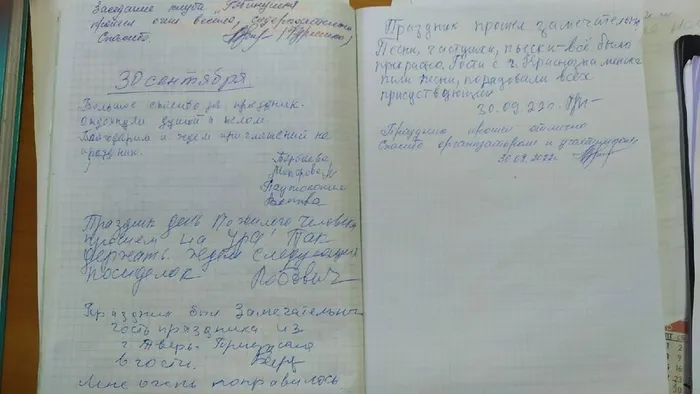 Заседание клуба
прошел очень весело,
Спасибо.
30 сентября
Большое спасибо за праздник.
Отдохнули душой и телом.
Благодарим и ждем приглашений на
праздник.
Праздник день Пожилого Человека
прошел на Ура! Так
держать ждем следующих
посиделок
Праздник был Замечательный
Гость праздника из
г. Тверь. Приехала
в гости.
Мне очень понравилось
Праздник прошел замечательно
Песни, частушки, пляски - всё было
прекрасно. Гости с г. Краснознаменска
пели песни, порадовали всех
присутствующих
30.09.22г.
Праздник прошел отлично
Спасибо организаторам и участникам
30.09.2022г.